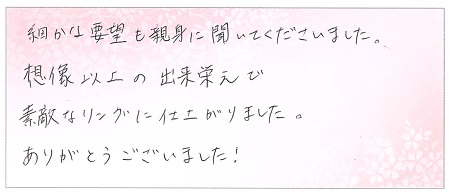 細かな要望も親身に聞いてくださいました。
想像以上の出来栄えで
素敵なリングに仕上がりました。
ありがとうございました!